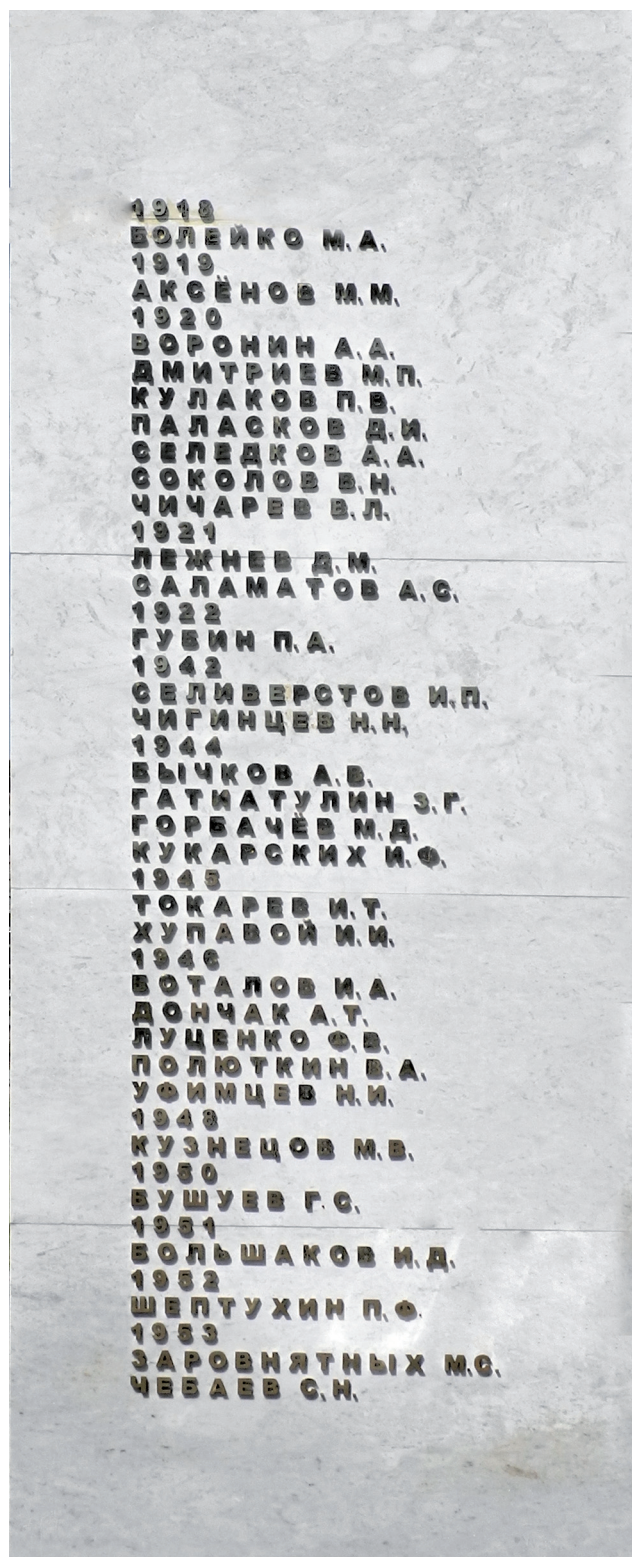 1918
БОЛЕЙКО М.А.
1919
АКСЁНОВ М.М.
1920
ВОРОНИН А.А.
ДМИТРИЕВ М.П.
КУЛАКОВ П.В.
ПАЛАСКОВ Д.И.
СЕЛЕДКОВ А.А.
СОКОЛОВ В.Н.
ЧИЧАРЕВ В.Л.
1921
ЛЕЖНЕВ Д.М.
САЛАМАТОВ А.С.
1922
ГУБИН П.А.
1942
СЕЛИВЕРСТОВ И.П.
ЧИГИНЦЕВ Н.Н.
1944
БЫЧКОВ А.В.
ГАТИАТУЛИН З.Г.
ГОРБАЧЁВ М.Д.
КУКАРСКИХ И.Ф.
1945
ТОКАРЕВ И.Т.
ХУПАВОЙ И.И.
1946
БОТАЛОВ И.А.
ДОНЧАК А.Т.
ЛУЦЕНКО Ф.В.
ПОЛЮТКИН В.А.
УФИМЦЕВ Н.И.
1948
КУЗНЕЦОВ М.В.
1950
БУШУЕВ Г.С.
1951
БОЛЬШАКОВ И.Д.
1952
ШЕПТУХИН П.Ф.
1953
ЗАРОВНЯТНЫХ М.С.
ЧЕБАЕВ С.Н.